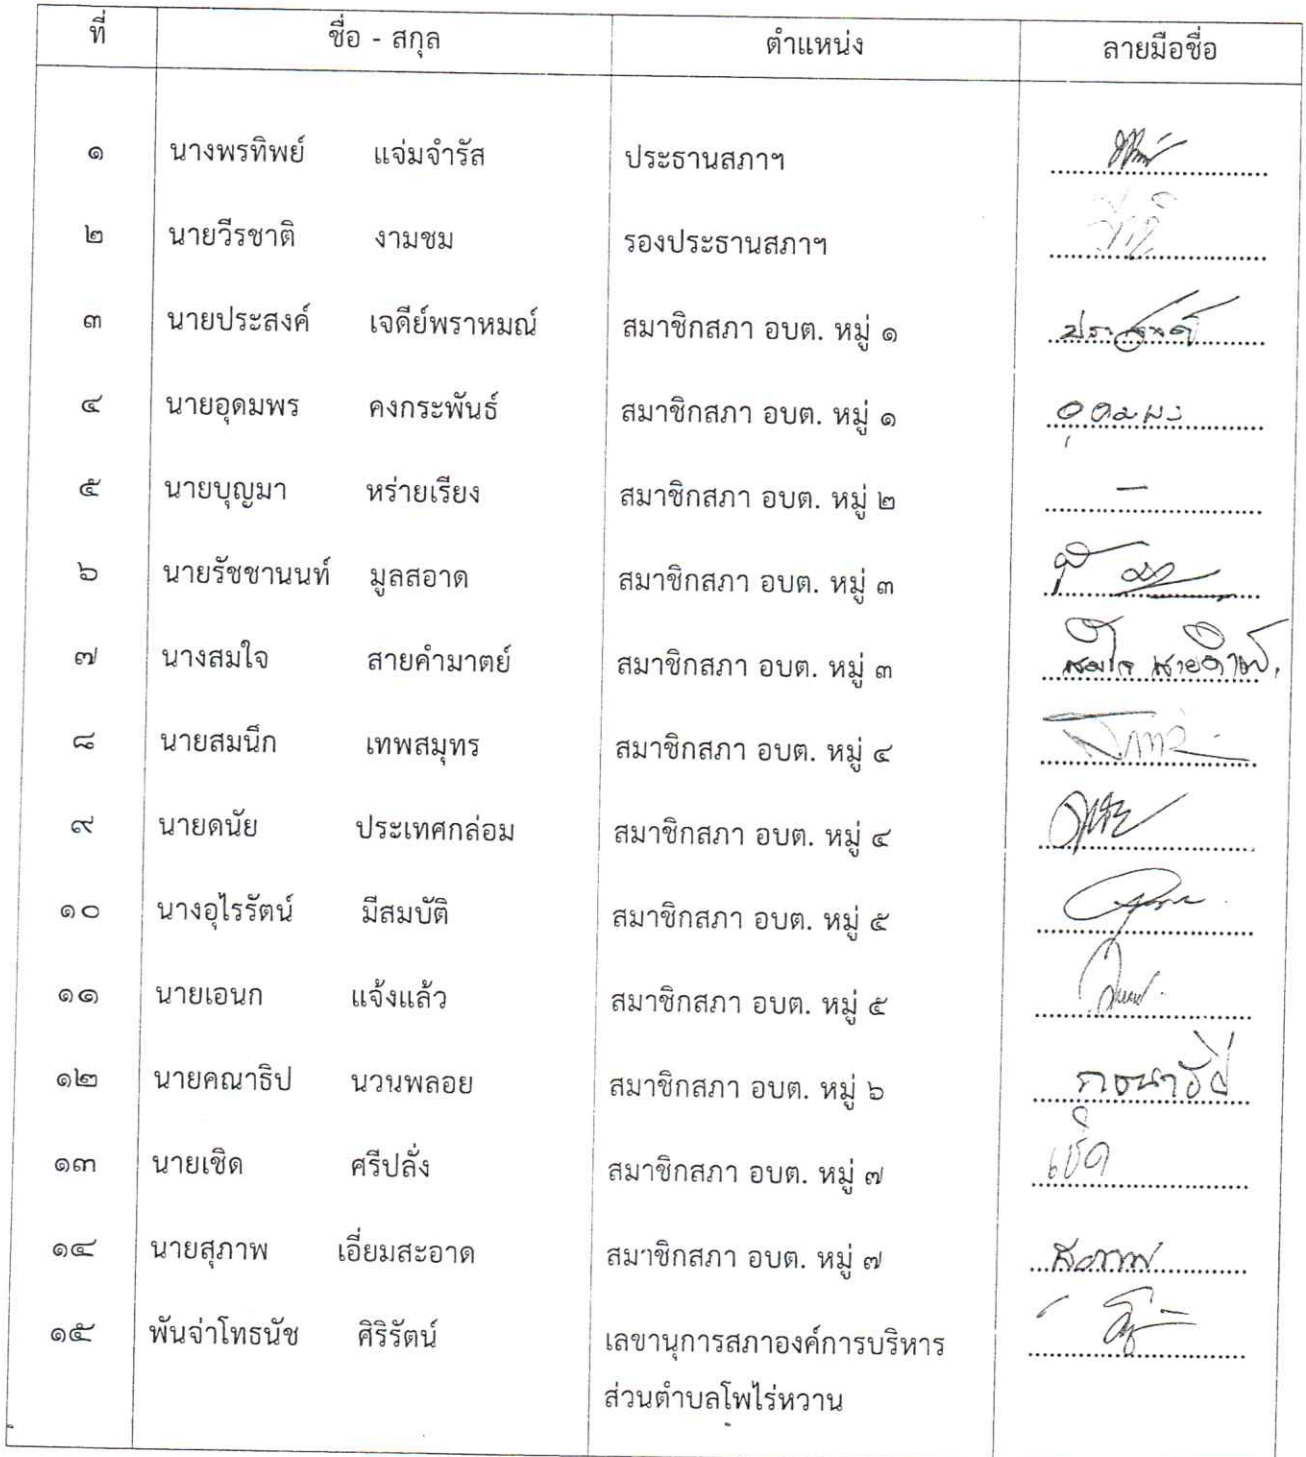 ที่ ชื่อ - สกุล ตำแหน่ง ลายมือชื่อ
๑ นางพรทิพย์ แจ่มจำรัส ประธานสภาฯ
๒ นายวีรชาติ งามชม รองประธานสภาฯ
๓ นายประสงค์ เจดีย์พราหมณ์ สมาชิกสภา อบต. หมู่ ๑ ประสงค์
๔ นายอุดมพร คงกระพันธ์ สมาชิกสภา อบต. หมู่ ๑ อุดมพร
๕ นายบุญมา หร่ายเรียง สมาชิกสภา อบต. หมู่ ๒ -
๖ นายรัชชานนท์ มูลสอาด สมาชิกสภา อบต. หมู่ ๓
๗ นางสมใจ สายคำมาตย์ สมาชิกสภา อบต. หมู่ ๓ สมใจ
๘ นายสมนึก เทพสมุทร สมาชิกสภา อบต. หมู่ ๔
๙ นายดนัย ประเทศกล่อม สมาชิกสภา อบต. หมู่ ๔
๑๐ นางอุไรรัตน์ มีสมบัติ สมาชิกสภา อบต. หมู่ ๕
๑๑ นายเอนก แจ้งแล้ว สมาชิกสภา อบต. หมู่ ๕
๑๒ นายคณาธิป นวนพลอย สมาชิกสภา อบต. หมู่ ๖
๑๓ นายเชิด ศรีปลั่ง สมาชิกสภา อบต. หมู่ ๗ เชิด
๑๔ นายสุภาพ เอี่ยมสะอาด สมาชิกสภา อบต. หมู่ ๗ สุภาพ
๑๕ พันจ่าโทธนัช ศิริรัตน์ เลขานุการสภาองค์การบริหาร
ส่วนตำบลโพไร่หวาน